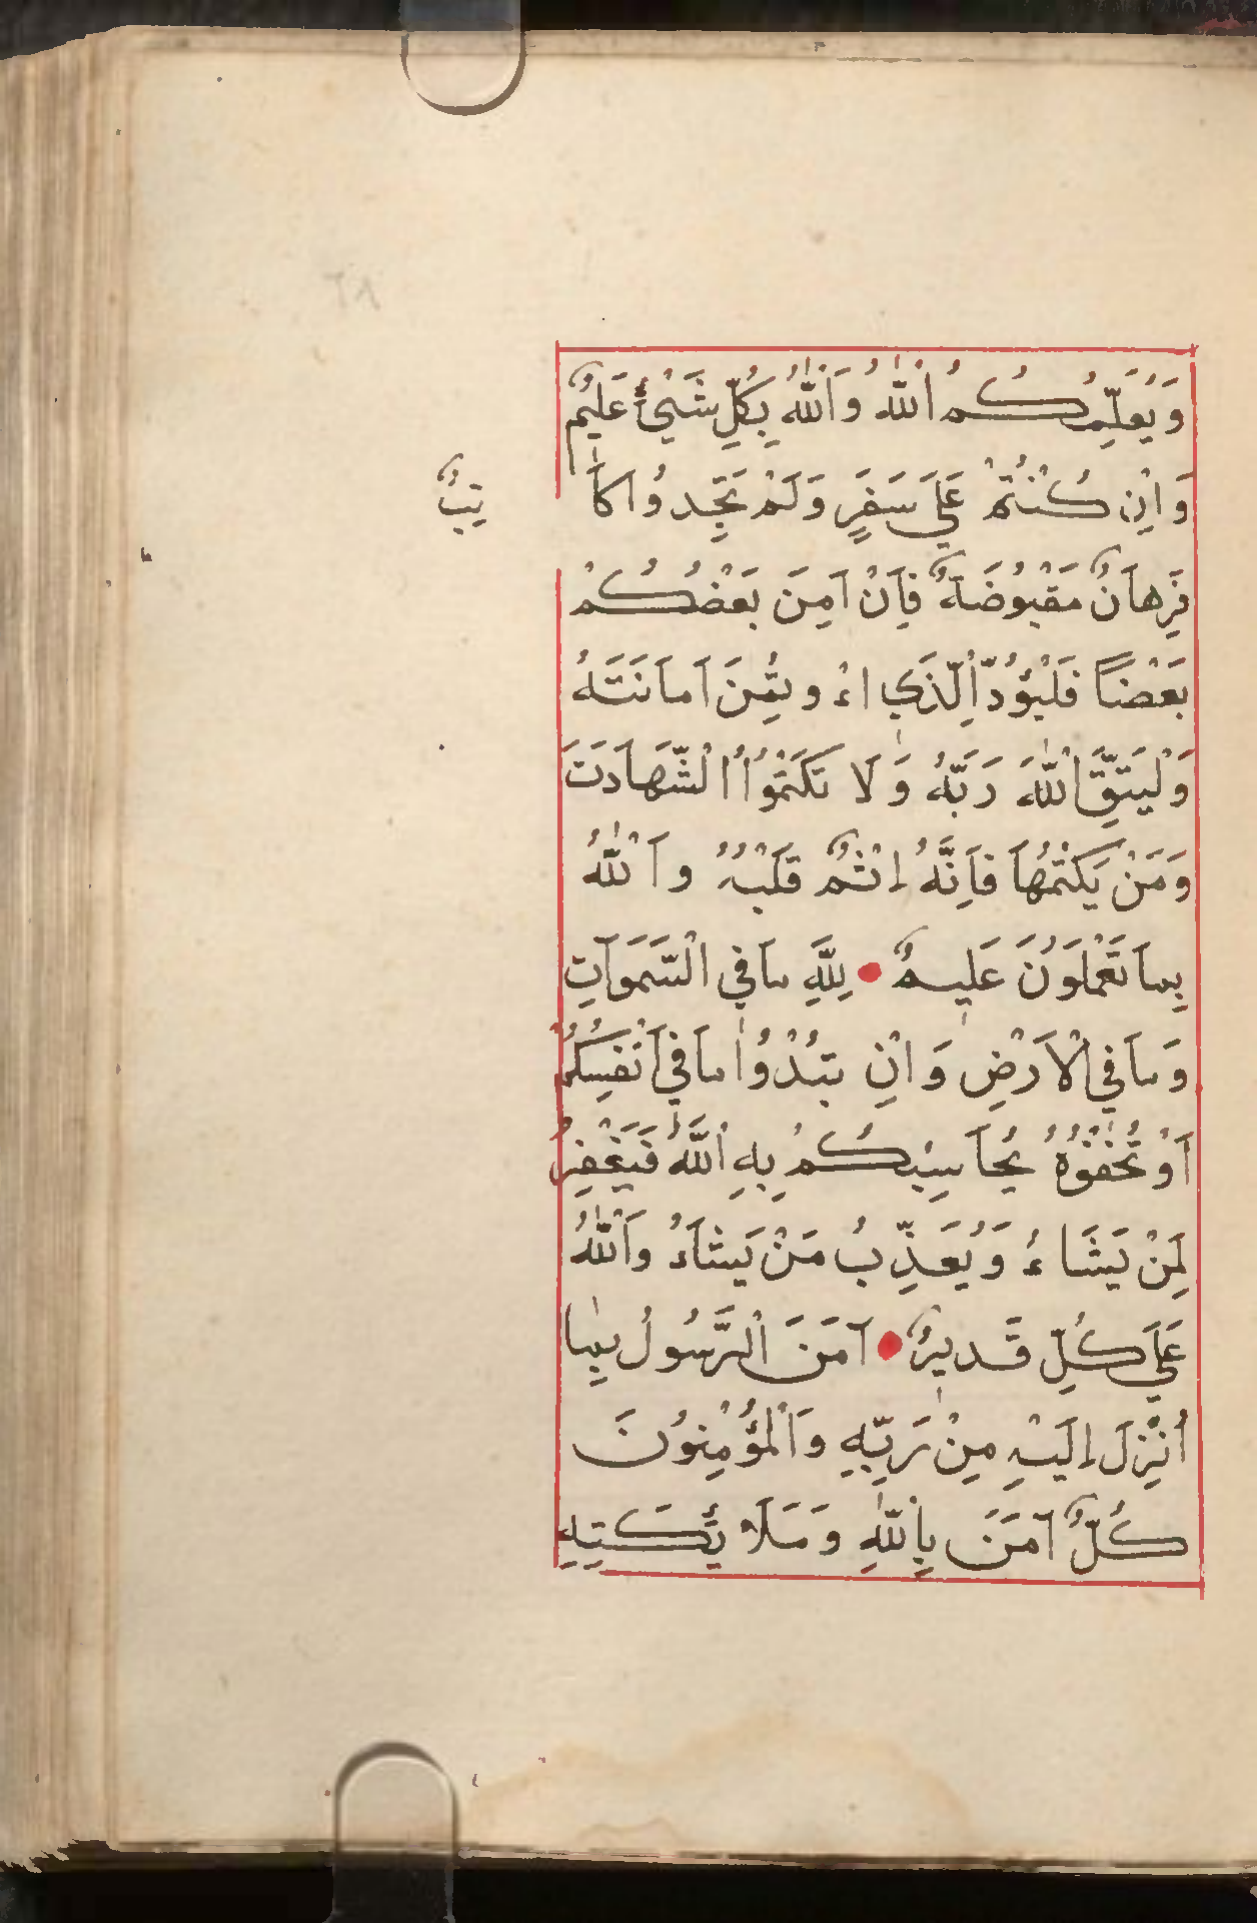 وَيُعَلِّمُكُمُ اللّٰهُ وَاَللّٰهُ بِكُلِّ شَيْئٍ عَلِيْمٌ
وَانِ كُنْتُمْ عَلَيَ سَفَرٍ وَلَمْ تَجِّدوُاكاَ
تِبٌ
فَرِهاَنٌ مَقْبُوُضَةٌ فَاِنْ اَمِنَ بَعْضُكُمْ
بَعْضاً فَلْيُؤدِّ اْلّذَيِ اءْ وتُمِنَ اَماَنَتَهُ
وَلْيَتَّقِ اْللّٰهَ رَبَّهُ وَلَا تَكْتُمُوُاْ الْشَّهاَدَتَ
وَمَنْ يَكْتُمْهاَ فَاِنَّهُ اٖثْمٌ قَلْبُهُ واَللّٰهُ
بِماَ تَعْمَلَوُنَ عَلِيمٌ لِلَّهِ ماَفيِ الْسَّمَوَاَتِ
وَماَفيِ اْلاَرْضِ وَانِ تبُدْوُا ماَفيِ اَنْفُسِكُمُ
اَوْ تُخْفُوْهُ يُحاَسِبْكُمْ بِهِ اْللَّهُ فَيَغْفِرُ
لِمَنْ يَشَاءُ وَيُعَذِّبُ مَنْ يَشاَءُ واَللّٰهُ
عَلَيَ كُلِّ قَديٖرٌ اَمَنَ اْلرَّسُولُ بِماَ
اُنْزِلَ اٖلَيْهِ مِنْ رَبِّهِ واَلْمُؤْمِنوُنَ
كُلٌّ اَمَنَ بِاْللّٰهِ وَمَلَاْ ئَكَتِهِ